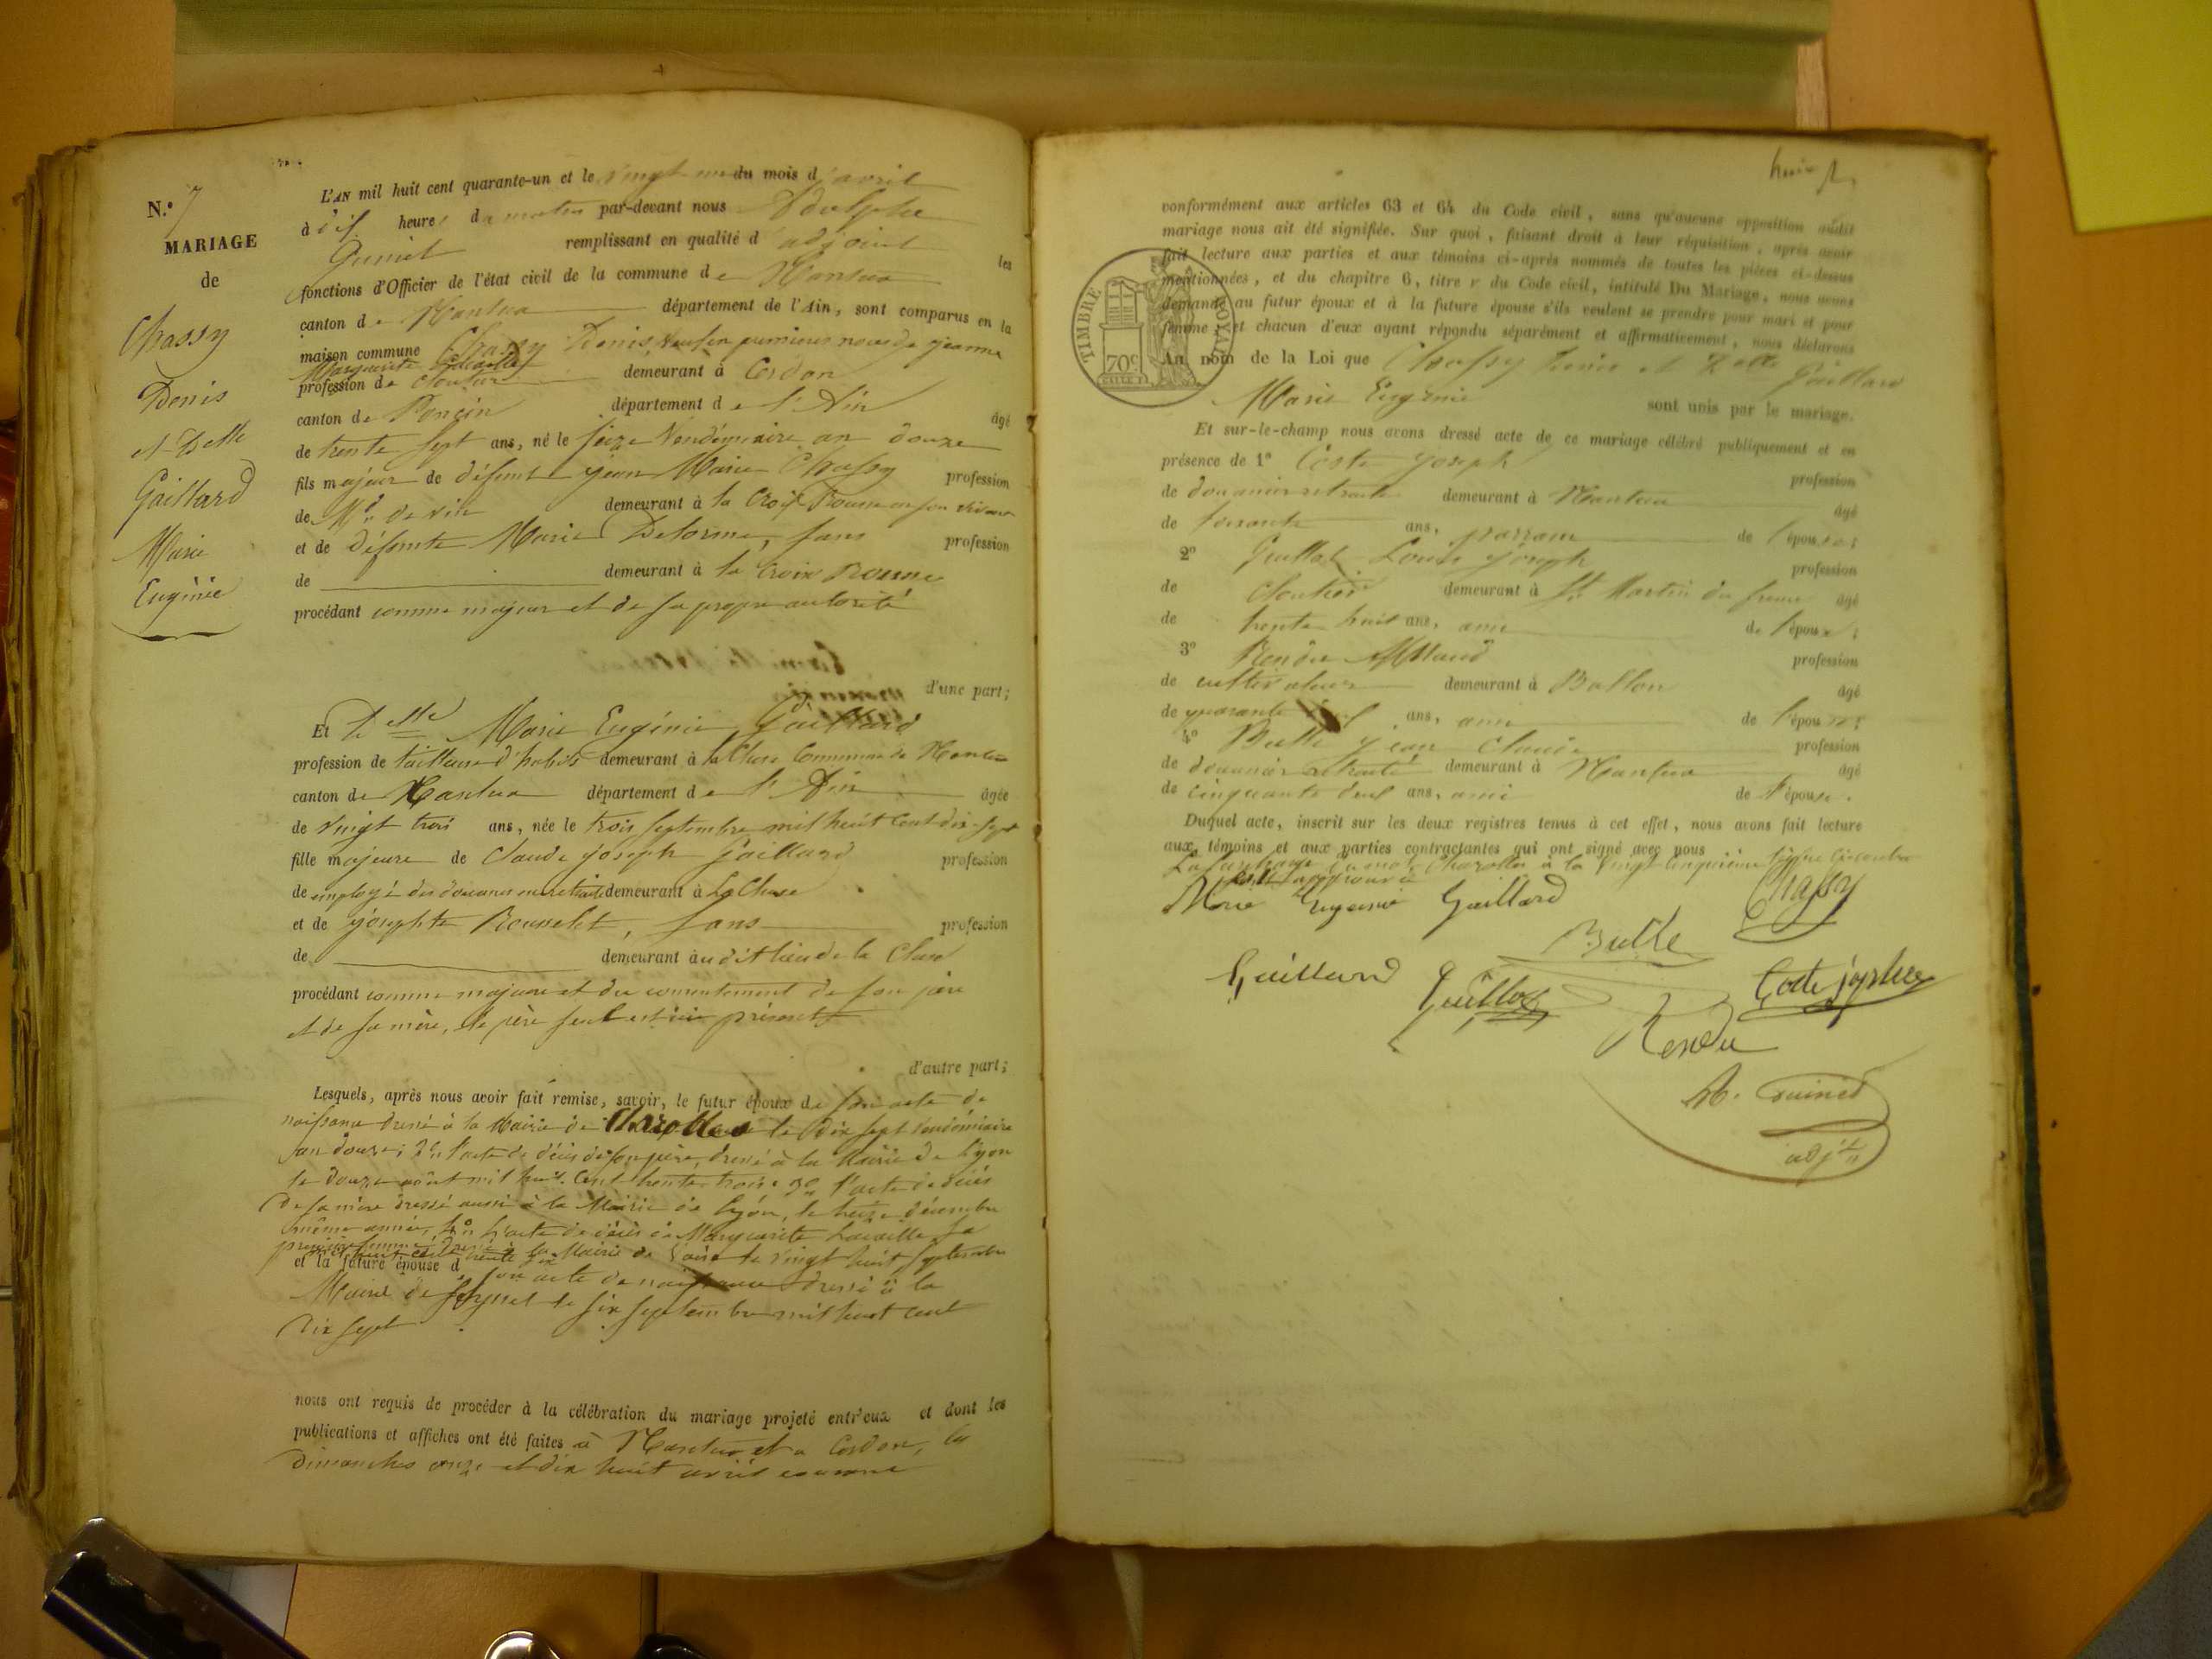 N.º 7
MARIAGE
de
Chassy
Denis
et Delle
Gaillard
Marie
Eugénie
L'AN mil huit cent quarante-un et le vingt un du mois d'avril
à dix heures du matin par-devant nous Adolphe
Guinet remplissant en qualité d'adjoint les
fonctions d'Officier de l'état civil de la commune de Nantua
canton de Nantua département de l'Ain, sont comparus en la
maison commune Chassy Denis veuf en premieres noces de jeanne
Marguerite
profession de cloutier demeurant à Cerdon
canton de Poncin département de l'Ain âgé
de trente sept ans, né le seize Vendémiaire an douze
fils majeur de défunt jean Marie Chassy profession
de Md de vin demeurant à la Croix Rousse en son vivant
et de défunte Marie Delorme, sans profession
de demeurant à la Croix Rousse
procédant comme majeur et de sa propre autorité
d'une part;
Et Delle Marie Eugénie Gaillard
profession de tailleuse d'habits demeurant à la Cluse Commune de Nantua
canton de Nantua département de l'Ain âgée
de vingt trois ans, née le trois septembre mil huit cent dix-sept
fille majeure de Claude joseph Gaillard profession
de employé des douanes en retraite demeurant à La Cluse
et de josephte Rousselet, sans profession
de demeurant au dit lieu de la Cluse
procédant comme majeure et du consentement de son père
et de sa mère, le père seul est ici présent
d'autre part;
Lesquels, après nous avoir fait remise, savoir, le futur époux de son acte de
naissance dressé à la Mairie de Charolles le dix sept Vendémiaire
an douze; 2º l'acte de décès de son père, dressé à la Mairie de Lyon
le douze août mil huit cent trente trois; 3º l'acte de décès
de sa mère dressé aussi à la Mairie de Lyon, le treize décembre
même année, 4º l'acte de décès de Marguerite sa
première femme dressé à la Mairie de le vingt huit septembre
et la future épouse d son acte de naissance dressé à la
Mairie de le six septembre mil huit cent
dix sept
nous ont requis de procéder à la célébration du mariage projeté entr'eux et dont les
publications et affiches ont été faites à Nantua et à Cerdon, les
dimanches onze et dix huit avril courant
conformément aux articles 63 et 64 du Code civil, sans qu'aucune opposition audit
mariage nous ait été signifiée. Sur quoi, faisant droit à leur réquisition, après avoir
fait lecture aux parties et aux témoins ci-après nommés de toutes les pièces ci-dessus
mentionnées, et du chapitre 6, titre v du Code civil, intitulé Du Mariage, nous avons
demandé au futur époux et à la future épouse s'ils veulent se prendre pour mari et pour
femme, et chacun d'eux ayant répondu séparément et affirmativement, nous déclarons
TIMBRE ROYAL
70c
Au nom de la Loi que Chassy Denis et Delle Gaillard
Marie Eugénie sont unis par le mariage.
Et sur-le-champ nous avons dressé acte de ce mariage célébré publiquement et en
présence de 1º Coste joseph profession
de douanier retraité demeurant à Nantua âgé
de soixante ans, parrain de l'épouse;
2º Guillot Louis joseph profession
de Cloutier demeurant à St Martin du frene âgé
de trente huit ans, ami de l'époux;
3º Rendu profession
de cultivateur demeurant à Ballon âgé
de quarante ans, ami de l'épouse;
4º Bulle jean Claude profession
de douanier retraité demeurant à Nantua âgé
de cinquante deux ans, ami de l'épouse.
Duquel acte, inscrit sur les deux registres tenus à cet effet, nous avons fait lecture
aux témoins et aux parties contractantes qui ont signé avec nous
La surcharge du mot Charolles à la vingt cinquième ligne
est approuvée
Marie Eugenie Gaillard
Chassy
Bulle
Gaillard
Guillot
Coste joseph
Rendu
A. Guinet
adjt